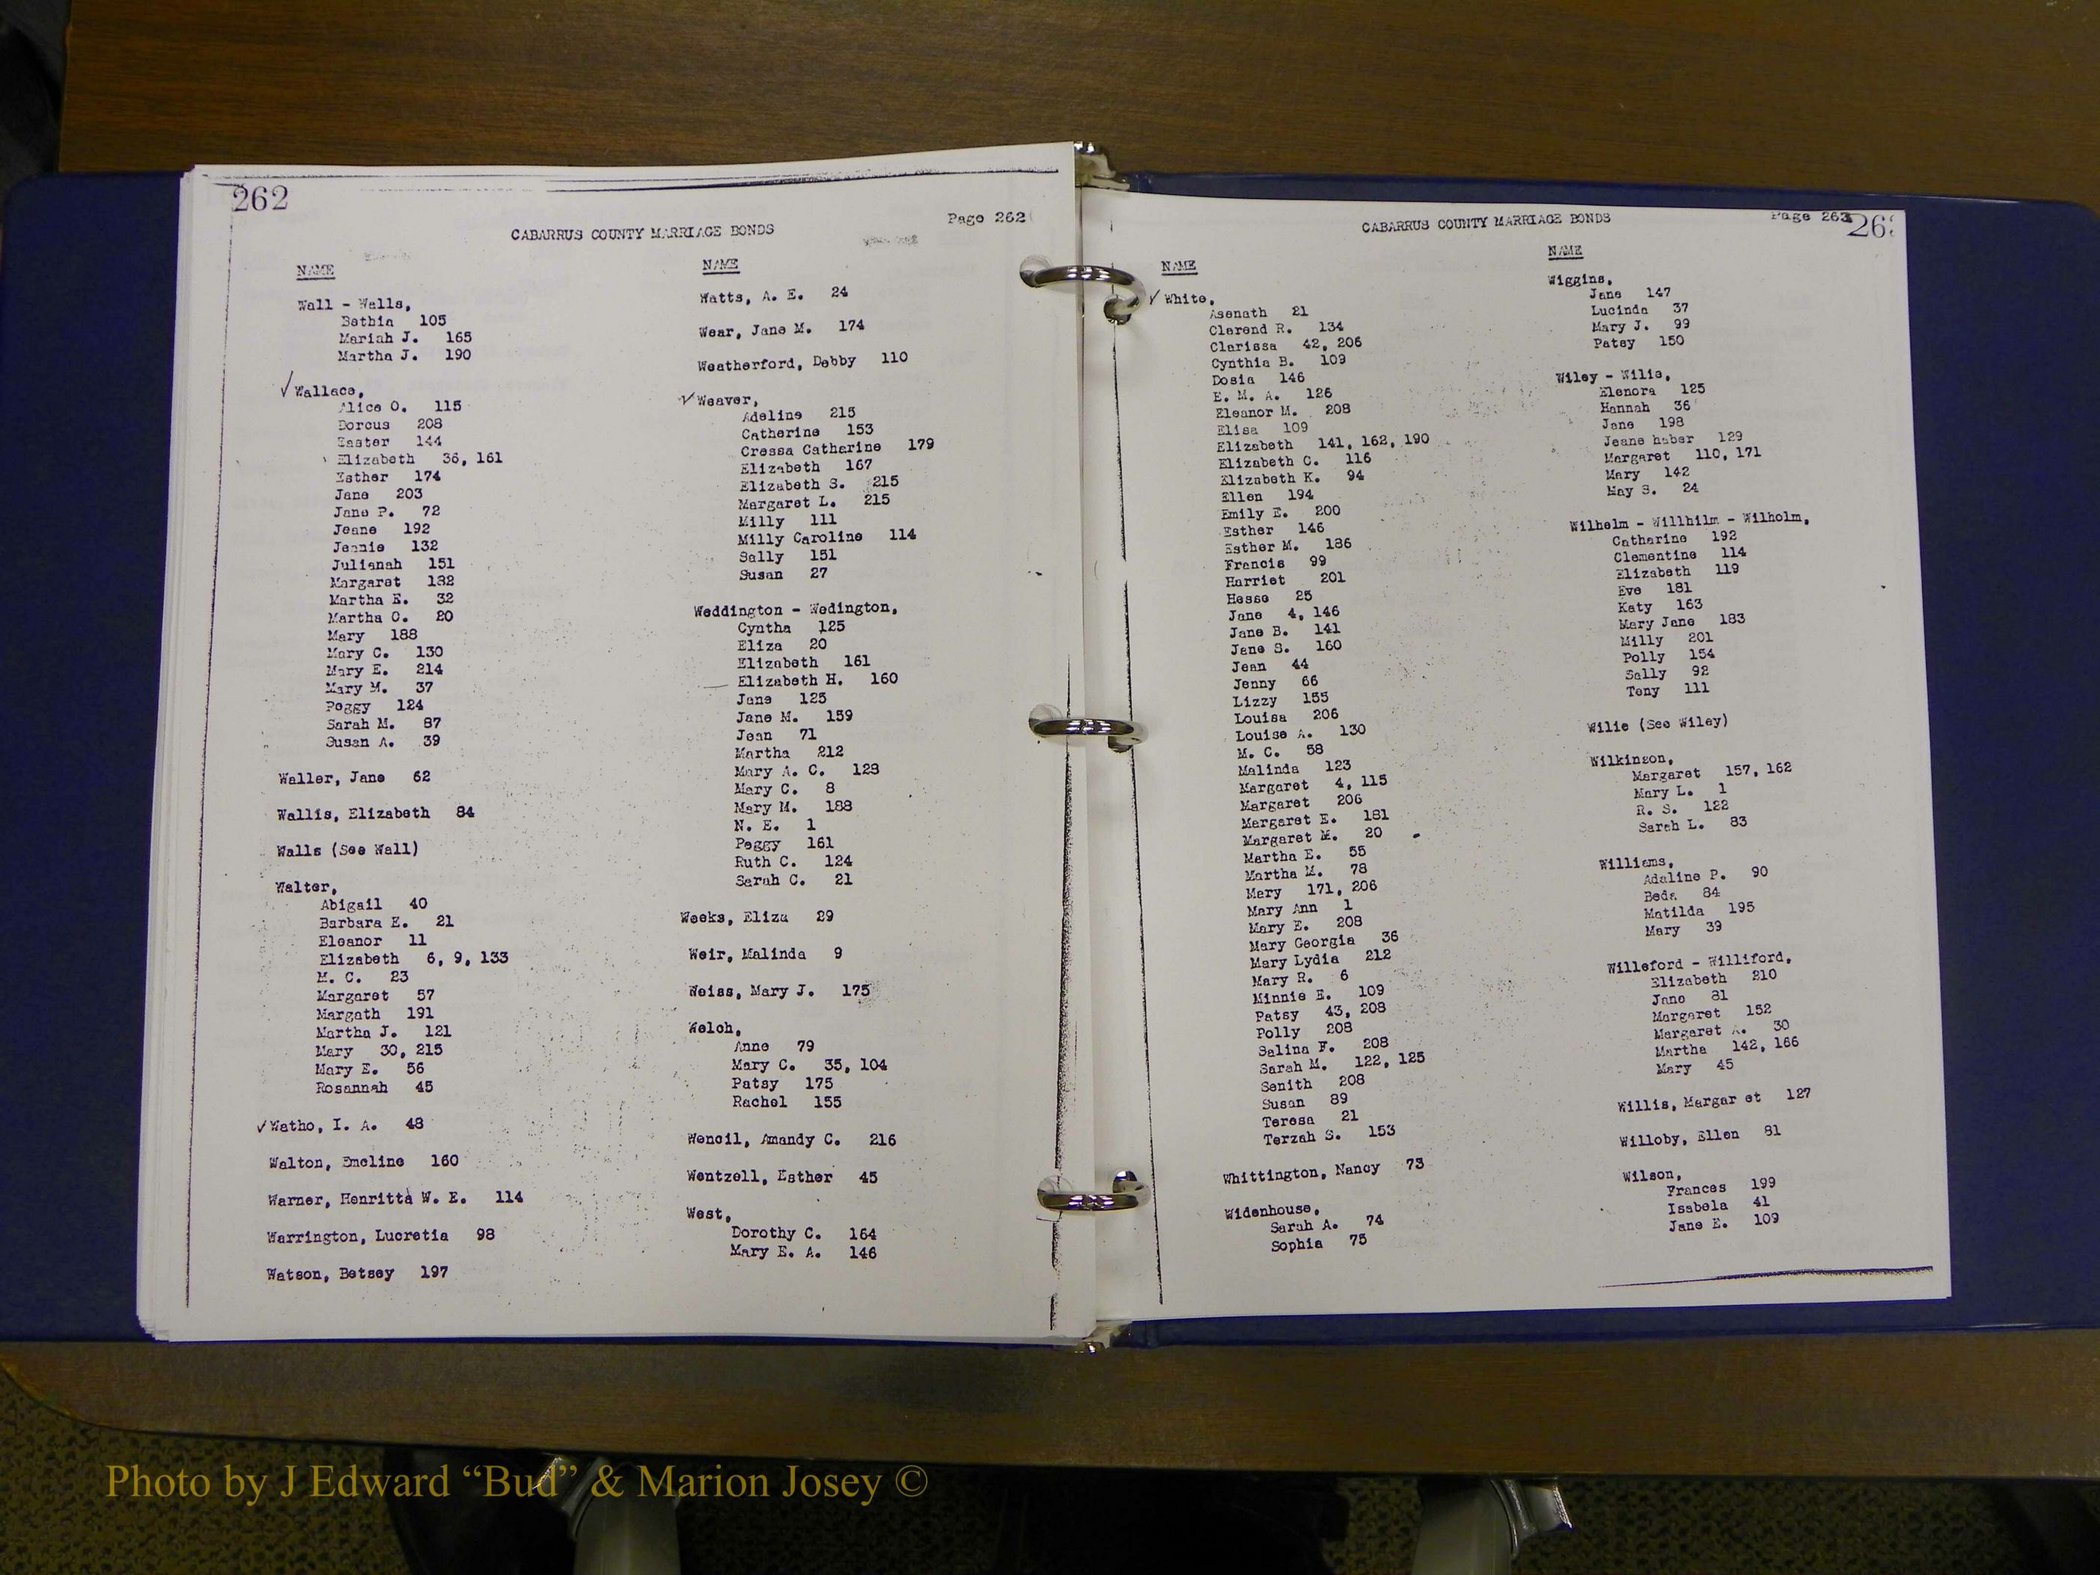 262
Page 262
CABARRUS COUNTY MARRIAGE BONDS
NAME
Wall - Walls,
Bethia 105
Mariah J. 165
Martha J. 190
✓ Wallace,
Alice O. 115
Dorcus 208
Easter 144
Elizabeth 36, 161
Esther 174
Jane 203
Jane P. 72
Jeane 192
Jennie 132
Julianah 151
Margaret 132
Martha E. 32
Martha C. 20
Mary 188
Mary C. 130
Mary E. 214
Mary M. 37
Peggy 124
Sarah M. 87
Susan A. 39
Waller, Jane 62
Wallis, Elizabeth 84
Walls (See Wall)
Walter,
Abigail 40
Barbara E. 21
Eleanor 11
Elizabeth 6, 9, 133
M. C. 23
Margaret 57
Margath 191
Martha J. 121
Mary 30, 215
Mary E. 56
Rosannah 45
✓ Watho, I. A. 48
Walton, Emeline 160
Warner, Henritta W. E. 114
Warrington, Lucretia 98
Watson, Betsey 197
NAME
Watts, A. E. 24
Wear, Jane M. 174
Weatherford, Debby 110
✓ Weaver,
Adeline 215
Catherine 153
Cressa Catharine 179
Elizabeth 167
Elizabeth S. 215
Margaret L. 215
Milly 111
Milly Caroline 114
Sally 151
Susan 27
Weddington - Wedington,
Cyntha 125
Eliza 20
Elizabeth 161
Elizabeth H. 160
Jane 125
Jane M. 159
Jean 71
Martha 212
Mary A. C. 123
Mary C. 8
Mary M. 188
N. E. 1
Peggy 161
Ruth C. 124
Sarah C. 21
Weeks, Eliza 29
Weir, Malinda 9
Weiss, Mary J. 175
Welch,
Anne 79
Mary C. 35, 104
Patsy 175
Rachel 155
Wencil, Amandy C. 216
Wentzell, Esther 45
West,
Dorothy C. 164
Mary E. A. 146
CABARRUS COUNTY MARRIAGE BONDS
Page 263
NAME
✓ White,
Asenath 21
Clarend R. 134
Clarissa 42, 206
Cynthia B. 109
Dosia 146
E. M. A. 126
Eleanor M. 208
Elisa 109
Elizabeth 141, 162, 190
Elizabeth C. 116
Elizabeth K. 94
Ellen 194
Emily E. 200
Esther 146
Esther M. 186
Francis 99
Harriet 201
Hesse 25
Jane 4, 146
Jane B. 141
Jane S. 160
Jean 44
Jenny 66
Lizzy 155
Louisa 206
Louise A. 130
M. C. 58
Malinda 123
Margaret 4, 115
Margaret 206
Margaret E. 181
Margaret M. 20
Martha E. 55
Martha M. 78
Mary 171, 206
Mary Ann 1
Mary E. 208
Mary Georgia 36
Mary Lydia 212
Mary R. 6
Minnie E. 109
Patsy 43, 208
Polly 208
Salina F. 208
Sarah M. 122, 125
Senith 208
Susan 89
Teresa 21
Terzah S. 153
Whittington, Nancy 73
Widenhouse,
Sarah A. 74
Sophia 75
NAME
Wiggins,
Jane 147
Lucinda 37
Mary J. 99
Patsy 150
Wiley - Wilie,
Elenora 125
Hannah 36
Jane 198
Jeane haber 129
Margaret 110, 171
Mary 142
May S. 24
Wilhelm - Willhilm - Wilholm,
Catharine 192
Clementine 114
Elizabeth 119
Eve 181
Katy 163
Mary Jane 183
Milly 201
Polly 154
Sally 92
Teny 111
Wilie (See Wiley)
Wilkinson,
Margaret 157, 162
Mary L. 1
R. S. 122
Sarah L. 83
Williams,
Adaline P. 90
Beda 84
Matilda 195
Mary 39
Willeford - Williford,
Elizabeth 210
Jane 81
Margaret 152
Margaret A. 30
Martha 142, 166
Mary 45
Willis, Margar et 127
Willoby, Ellen 81
Wilson,
Frances 199
Isabela 41
Jane E. 109
Photo by J Edward “Bud” & Marion Josey ©